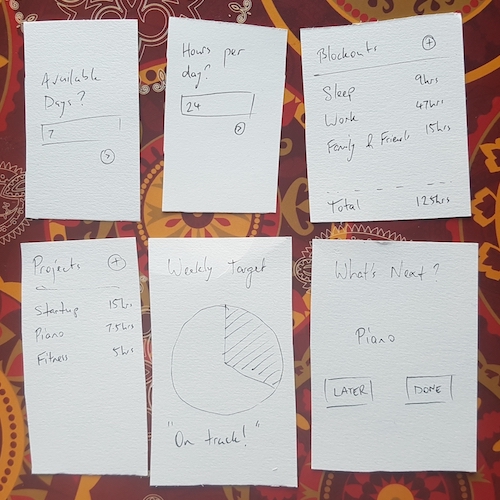 Available
Days?
7
>
Hours per
day?
24
>
Blockouts +
Sleep 9hrs
Work 47hrs
Family & Friends 15hrs
Total 125hrs
Projects +
Startup 15hrs
Piano 7.5hrs
Fitness 5hrs
Weekly Target
"On track!"
What's Next?
Piano
LATER DONE